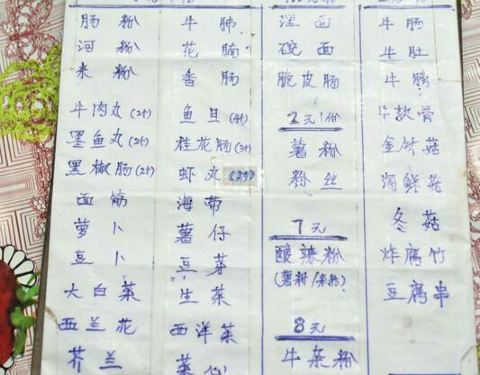 肠粉
河粉
米粉
牛肉丸(2个)
墨鱼丸(2个)
黑椒肠(2个)
面筋
萝卜
豆卜
大白菜
西兰花
芥兰
牛肺
花腩
香肠
鱼旦(4个)
桂花肠(3个)
虾丸(3个)
海带
薯仔
豆芽
生菜
西洋菜
菜心
湿面
碗面
脆皮肠
2元/份
薯粉
粉丝
7元
酸辣粉
(薯粉/米粉)
8元
牛杂粉
牛肠
牛肚
牛膀
牛软骨
金针菇
海鲜菇
冬菇
炸腐竹
豆腐串